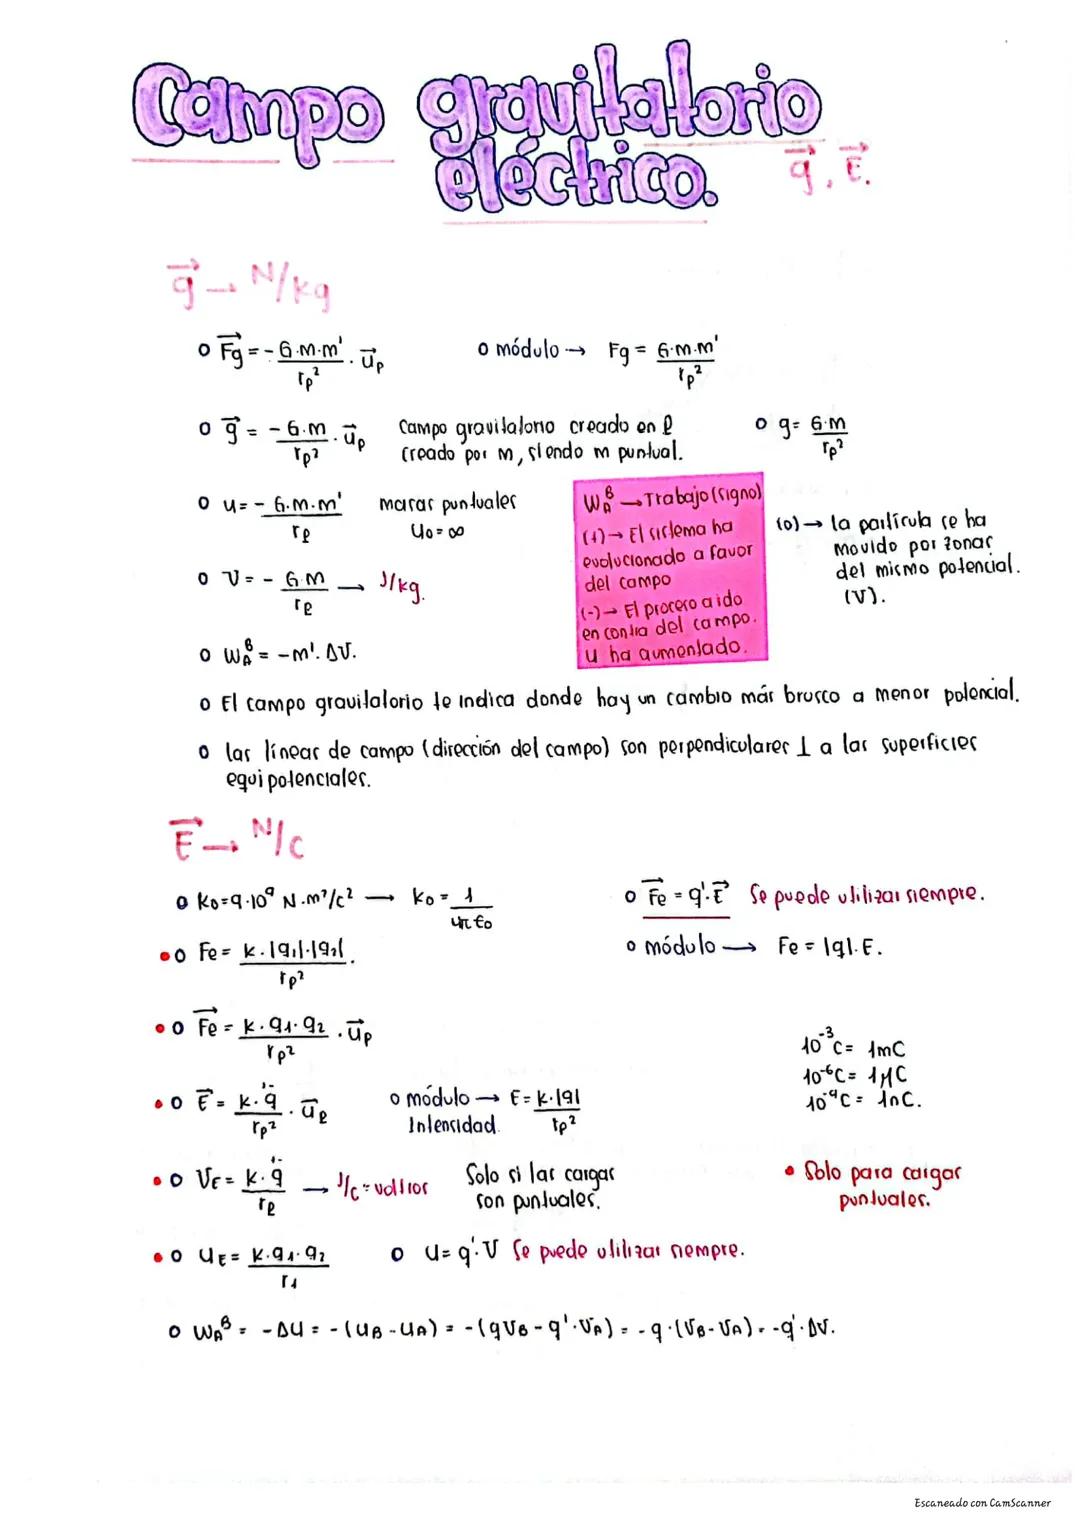 Campo gravitatorio
eléctrico. g⃗, E⃗.
g⃗ → N/kg
o F⃗g = - G·m·m' / rp² · u⃗p o módulo → Fg = G·m·m' / rp²
o g⃗ = - G·m / rp² · u⃗p Campo gravitatorio creado en P
creado por m, siendo m puntual. o g = G·m / rp²
o U = - G·m·m' / rp masas puntuales
U0 = ∞
o V = - G·m / rp → J/kg.
o W_A^B = -m'·ΔV.
W_A^B → Trabajo (signo)
(+) → El sistema ha
evolucionado a favor
del campo
(-) → El proceso a ido
en contra del campo.
U ha aumentado.
(0) → la partícula se ha
movido por zonas
del mismo potencial.
(V).
o El campo gravitatorio te indica donde hay un cambio más brusco a menor potencial.
o las líneas de campo (dirección del campo) son perpendiculares ⊥ a las superficies
equipotenciales.
E⃗ → N/C
o K0 = 9·10⁹ N·m²/c² → K0 = 1 / 4πε0
o F⃗e = q'·E⃗ Se puede utilizar siempre.
• o Fe = k·|q1|·|q2| / rp². o módulo → Fe = |q|·E.
• o F⃗e = k·q1·q2 / rp² · u⃗p
10⁻³C = 1mC
10⁻⁶C = 1μC
10⁻⁹C = 1nC.
• o E⃗ = k·q / rp² · u⃗p +- o módulo → E = k·|q| / rp²
Intensidad.
• o VE = k·q / rp +- → J/C = voltios Solo si las cargas
son puntuales.
• Solo para cargas
puntuales.
• o UE = k·q1·q2 / r1 o U = q'·V Se puede utilizar siempre.
o W_A^B = -ΔU = -(UB - UA) = -(qVB - q'·VA) = -q·(VB - VA) = -q'·ΔV.
Escaneado con CamScanner